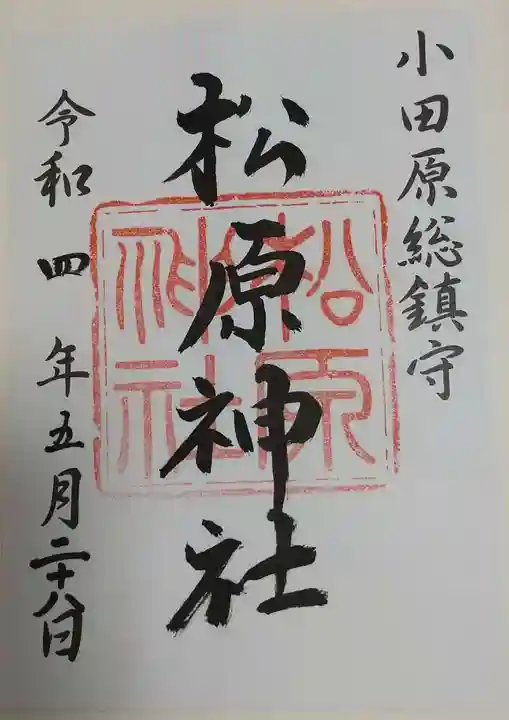 小田原総鎮守
松原神社
松原神社
令和四年五月二十八日